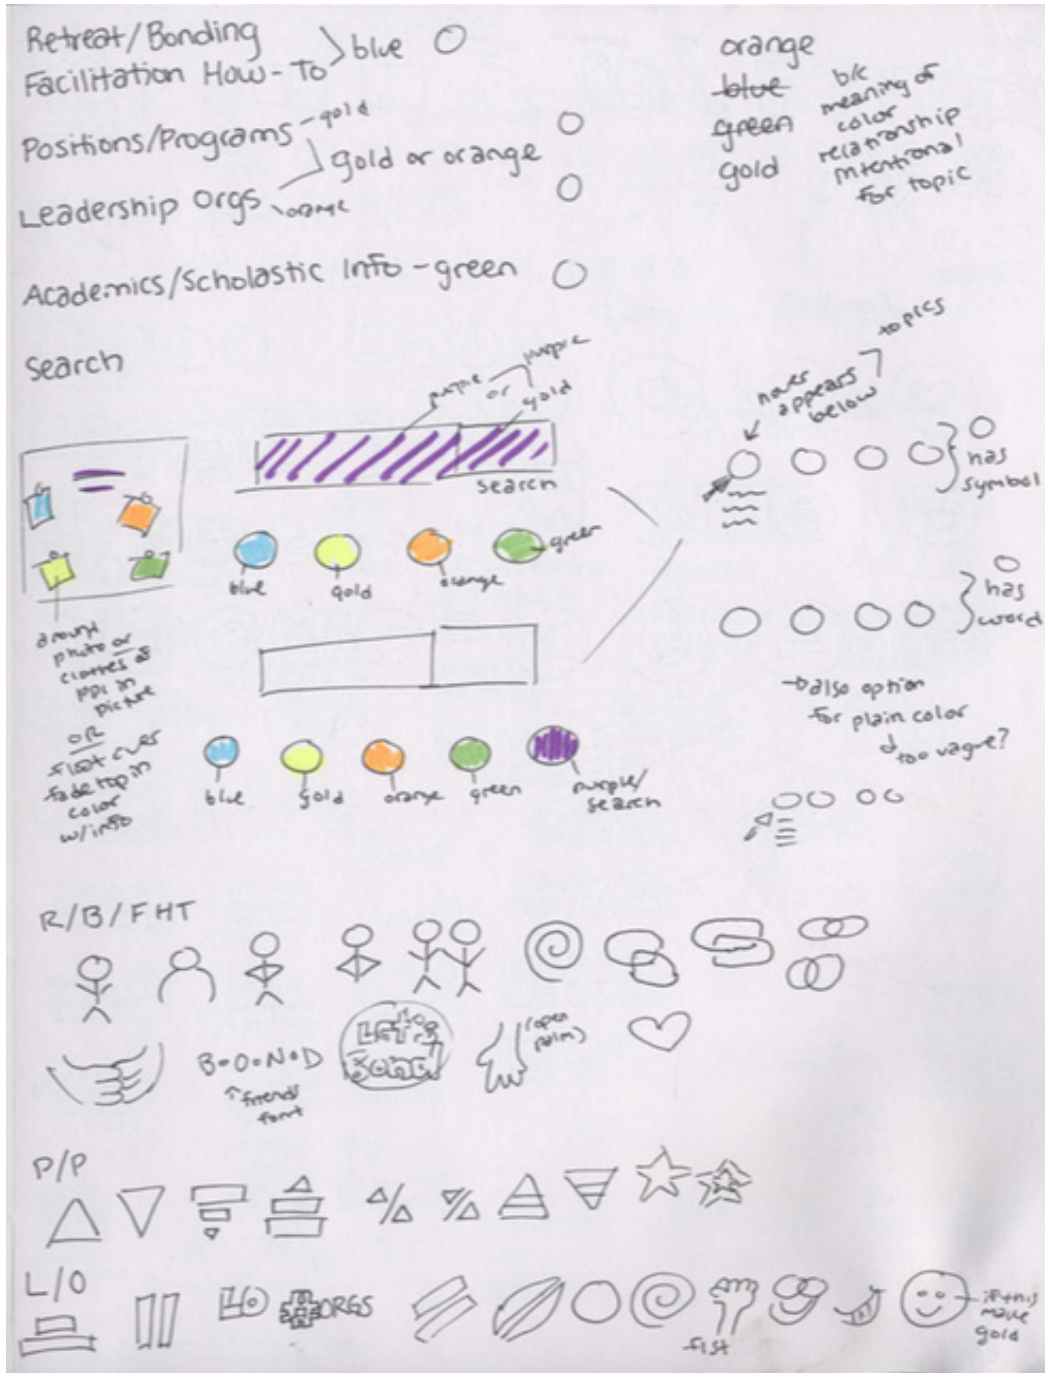 Retreat/Bonding
Facilitation How-To
blue
Positions/Programs - gold
gold or orange
Leadership Orgs
orange
Academics/Scholastic Info - green
orange
blue
green
gold
b/c
meaning of
color
relationship
intentional
for topic
Search
purple or
purple
gold
search
blue
gold
orange
green
around
photo or
clothes of
ppl in
picture
OR
float over
fade top in
color
w/info
blue
gold
orange
green
purple/
search
topics
hover
appears
below
has
symbol
has
word
also option
for plain color
too vague?
R/B/FHT
B•O•N•D
friends
font
Let's
Bond
(open
palm)
P/P
L/O
LO
#ORGS
fist
if this
make
gold